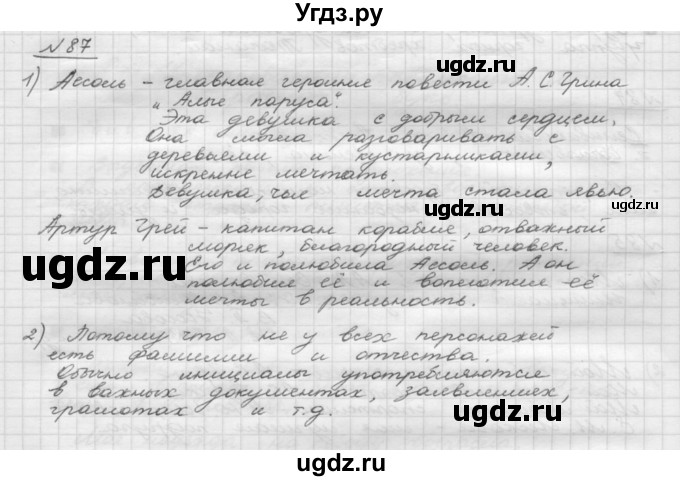 Угдз.ру
№87
1) Ассоль – главная героиня повести А.С.Грина
„Алые паруса".
Эта девушка с добрым сердцем.
Она могла разговаривать с
деревьями и кустарниками,
искренне мечтать.
Девушка, чья мечта стала явью.
Артур Грей – капитан корабля, отважный
моряк, благородный человек.
Его и полюбила Ассоль. А он
полюбил её и воплотил её
мечты в реальность.
2) Потому что не у всех персонажей
есть фамилии и отчества.
Обычно инициалы употребляются
в важных документах, заявлениях,
грамотах и т.д.
ugdz.ru
ugdz.ru
ugdz.ru
ugdz.ru
ugdz.ru
ugdz.ru
ugdz.ru
ugdz.ru